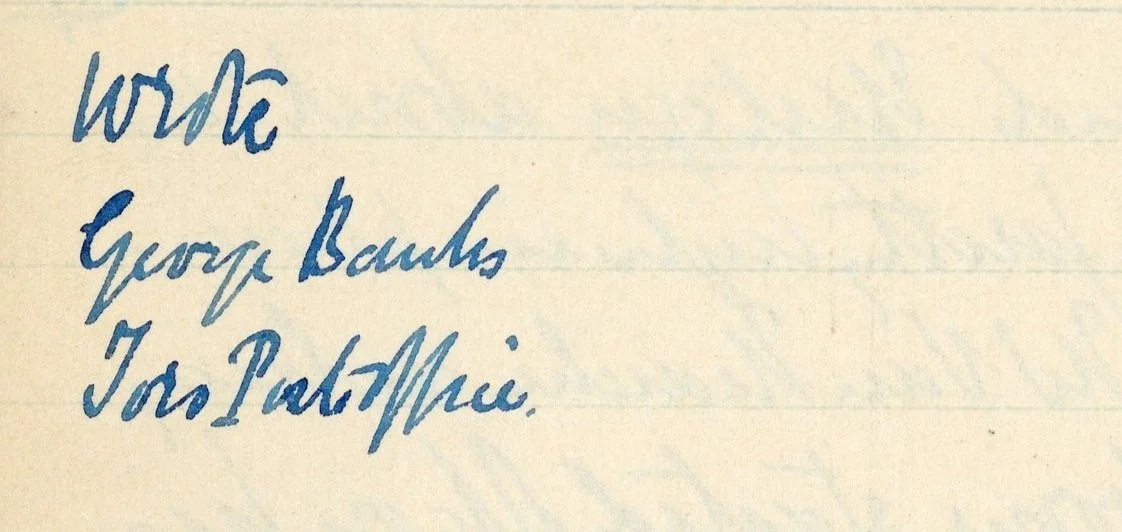 Wrote
George Banks
Toro Post Office.